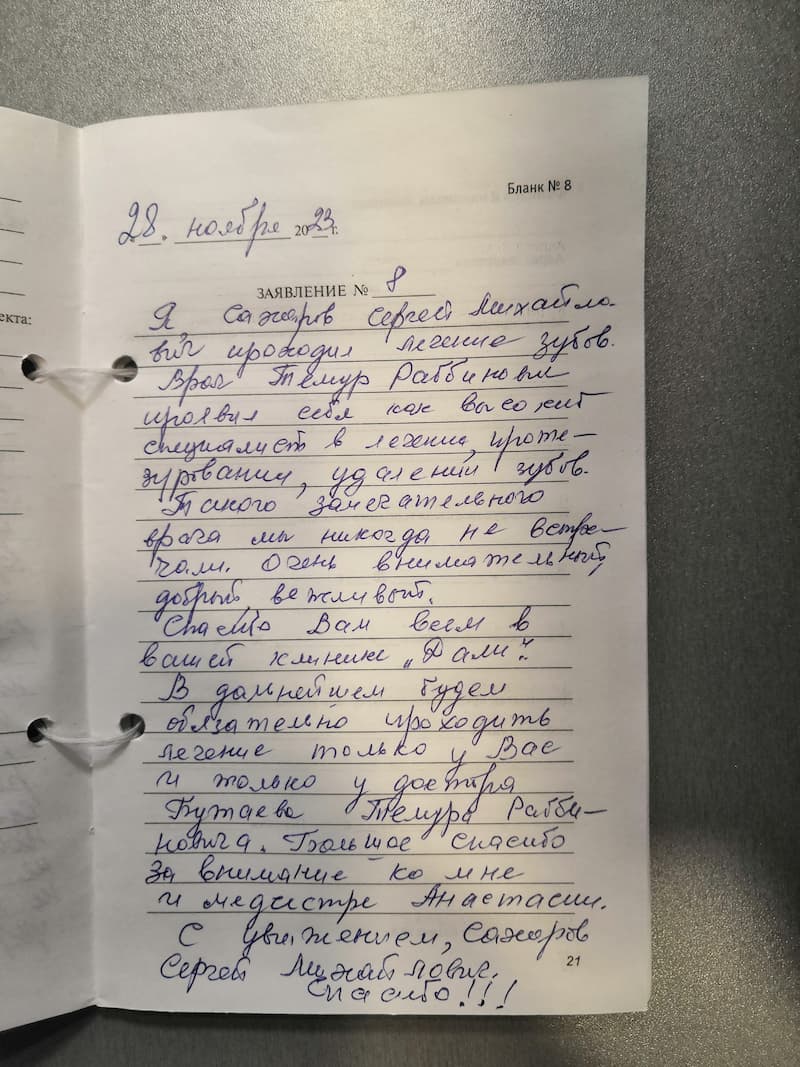 Бланк № 8
28. ноября 2023 г.
ЗАЯВЛЕНИЕ № 8
екта:
Я, Сахаров Сергей Михайло-
вич проходил лечение зубов.
Врач Темур Раббинович
проявил себя как высокий
специалист в лечении, проте-
зировании, удалении зубов.
Такого замечательного
врача мы никогда не встре-
чали. Очень внимательный,
добрый, вежливый.
Спасибо Вам всем в
вашей клинике „Дали".
В дальнейшем будем
обязательно проходить
лечение только у Вас
и только у доктра
Бутаева Темура Рабби-
новича. Большое спасибо
за внимание ко мне
и медсестре Анастасии.
С увжением, Сахаров
Сергей Михайлович.
Спасибо!!!
21